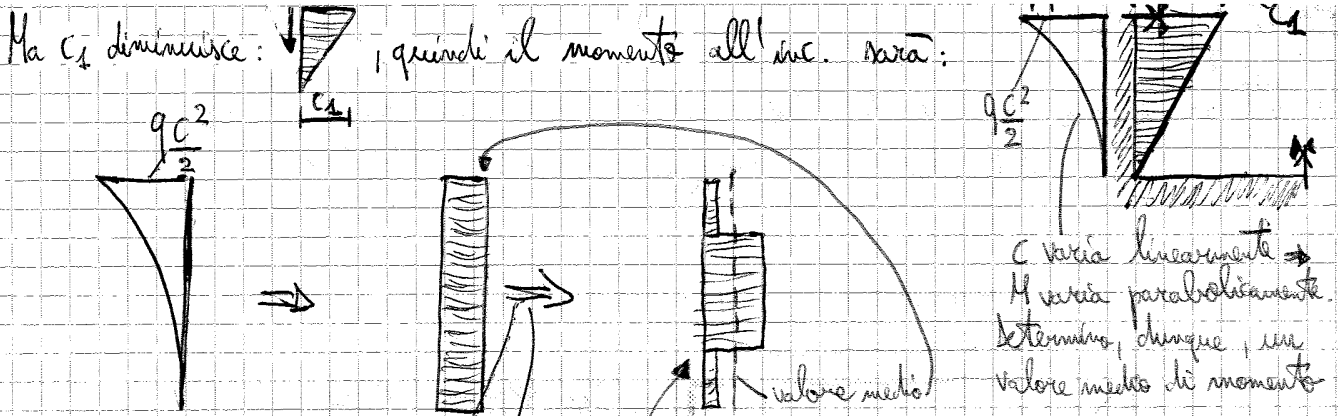 Ma C1 diminuisce: , quindi il momento all' inc. sarà:
C1
C1
q C²/2
q C²/2
C varia linearmente ⇒
M varia parabolicamente.
Determino, dunque, un
valore medio di momento
valore medio